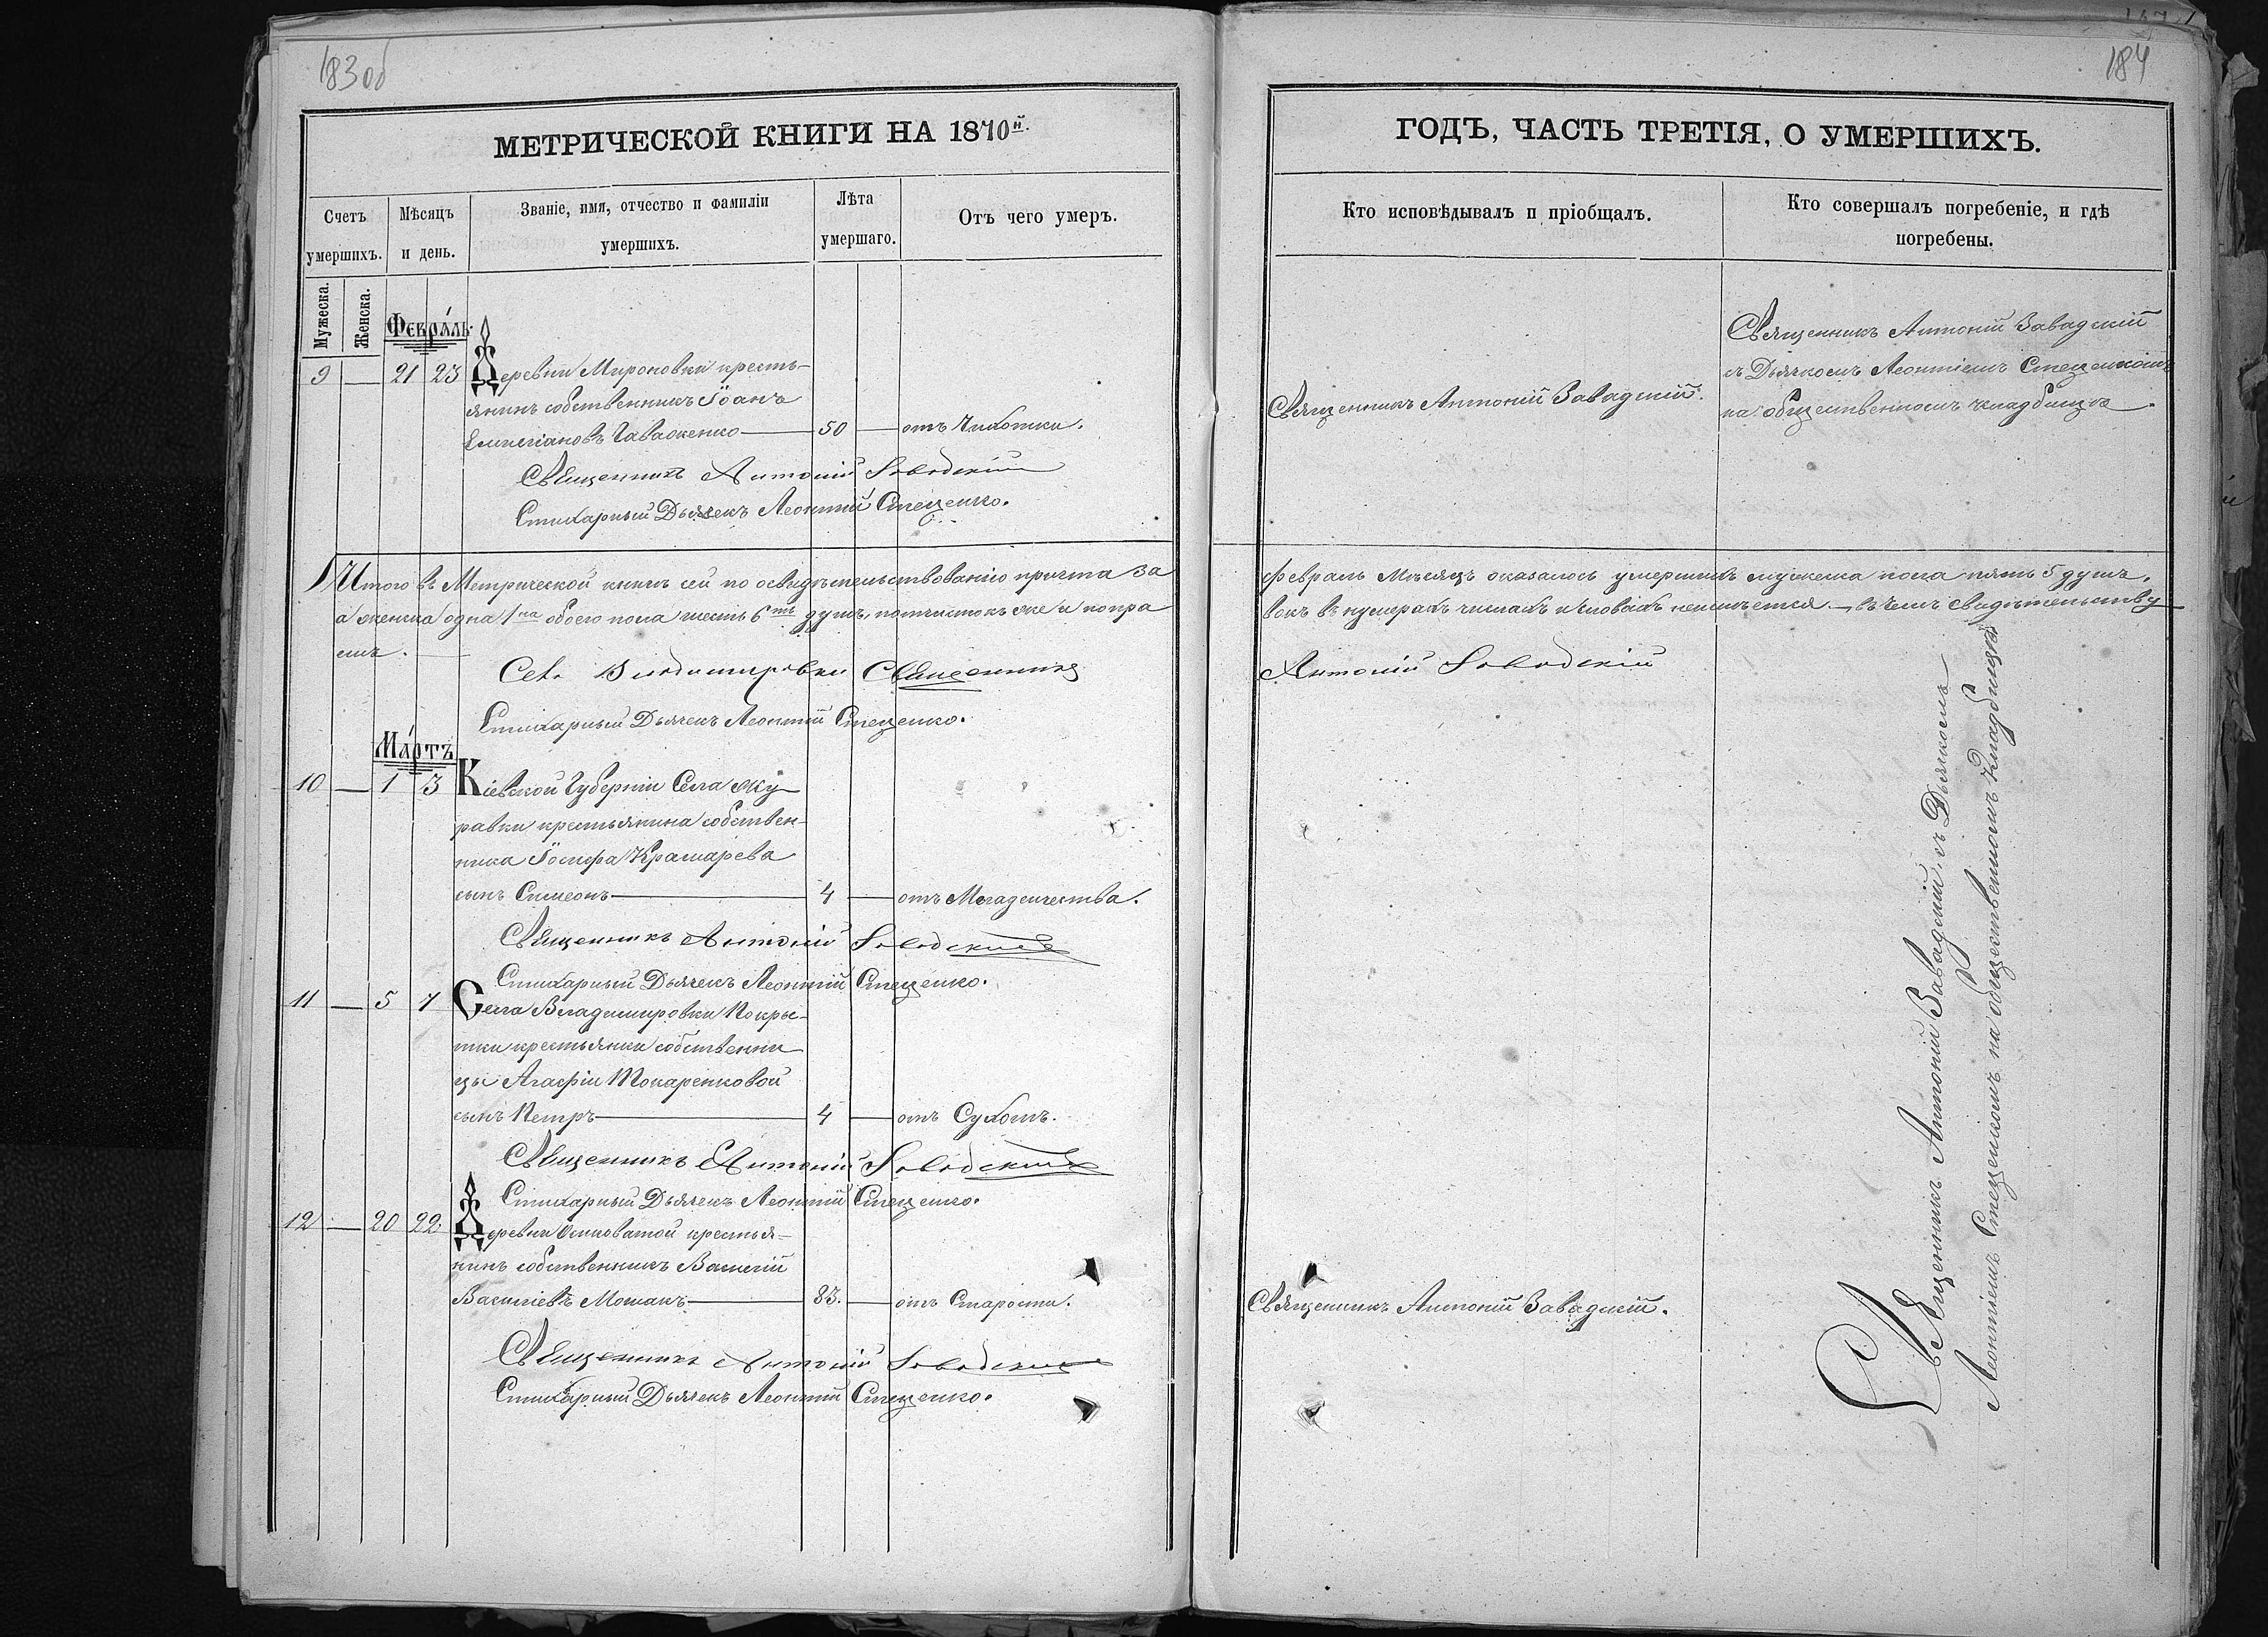 183об
МЕТРИЧЕСКОЙ КНИГИ НА 1870й.
Счетъ умершихъ.
Мѣсяцъ и день.
Званіе, имя, отчество и фамиліи умершихъ.
Лѣта умершаго.
Отъ чего умеръ.
Мужеска.
Женска.
Февраль.
9 — 21 23 Деревни Мироновки кресть-
янинъ собственникъ Іоанъ
Емиліановъ — 50 — отъ Чихотки.
Священникъ Антоній Заводскій
Стихарный Дьячекъ Леонтій Стеценко.
Итого въ Метрической книгѣ сей по освидѣтельствованію причта за
а женска одна 1на обоего пола шесть 6ть душъ, подчистокъ же и попра
емъ.
Села Владимировки Священникъ
Стихарный Дьячекъ Леонтій Стеценко.
Мартъ
10 — 1 3 Кіевской Губерніи Села Жу-
равки крестьянина собствен-
ника Іосифа Крамарева
сынъ Симеонъ — 4 — отъ Младенчества.
Священникъ Антоній Заводскій
Стихарный Дьячекъ Леонтій Стеценко.
11 — 5 7 Села Владимировки Покры-
тки крестьянки собственни-
цы Агафіи Токаренковой
сынъ Петръ — 4 — отъ Сухотъ.
Священникъ Антоній Заводскій
Стихарный Дьячекъ Леонтій Стеценко.
12 — 20 22. Деревни Осиноватой крестья-
нинъ собственникъ Василій
Васильевъ Мошакъ — 83. — отъ Старости.
Священникъ Антоній Заводскій
Стихарный Дьячекъ Леонтій Стеценко.
184
ГОДЪ, ЧАСТЬ ТРЕТІЯ, О УМЕРШИХЪ.
Кто исповѣдывалъ и пріобщалъ.
Кто совершалъ погребеніе, и гдѣ погребены.
Священникъ Антоній Завадскій.
Священникъ Антоній Завадскій
съ Дьячкомъ Леонтіемъ Стеценкомъ
на общественномъ кладбищѣ.
Февраль Мѣсяцъ оказалось умершихъ мужеска пола пять 5 душъ,
вокъ въ нумерахъ числахъ и словахъ неимѣется. — въ чемъ свидѣтельству-
Антоній Заводскій
Священникъ Антоній Завадскій.
Священникъ Антоній Завадскій съ Дьячкомъ
Леонтіемъ Стеценкомъ на общественномъ Кладбищѣ